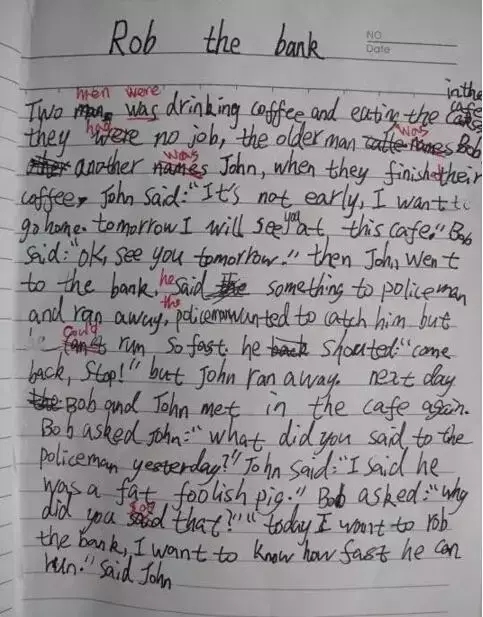 Rob the bank
NO.
Date
in the
cafe
men were
Two man was drinking coffee and eating the cakes
had was
they were no job, the older man names Bob
was
another names John, when they finished their
coffee, John said: "It's not early, I want to
you
go home. tomorrow I will see at this cafe." Bob
said: "OK, see you tomorrow." then John went
he
to the bank, said the something to policeman
the
and ran away, policeman wanted to catch him but
could
run so fast. he back shouted: "come
back, Stop!" but John ran away. next day
the Bob and John met in the cafe again.
Bob asked John: "what did you said to the
policeman yesterday?" John said: "I said he
was a fat foolish pig." Bob asked: "why
say
did you said that?" "today I want to rob
the bank, I want to know how fast he can
run." said John